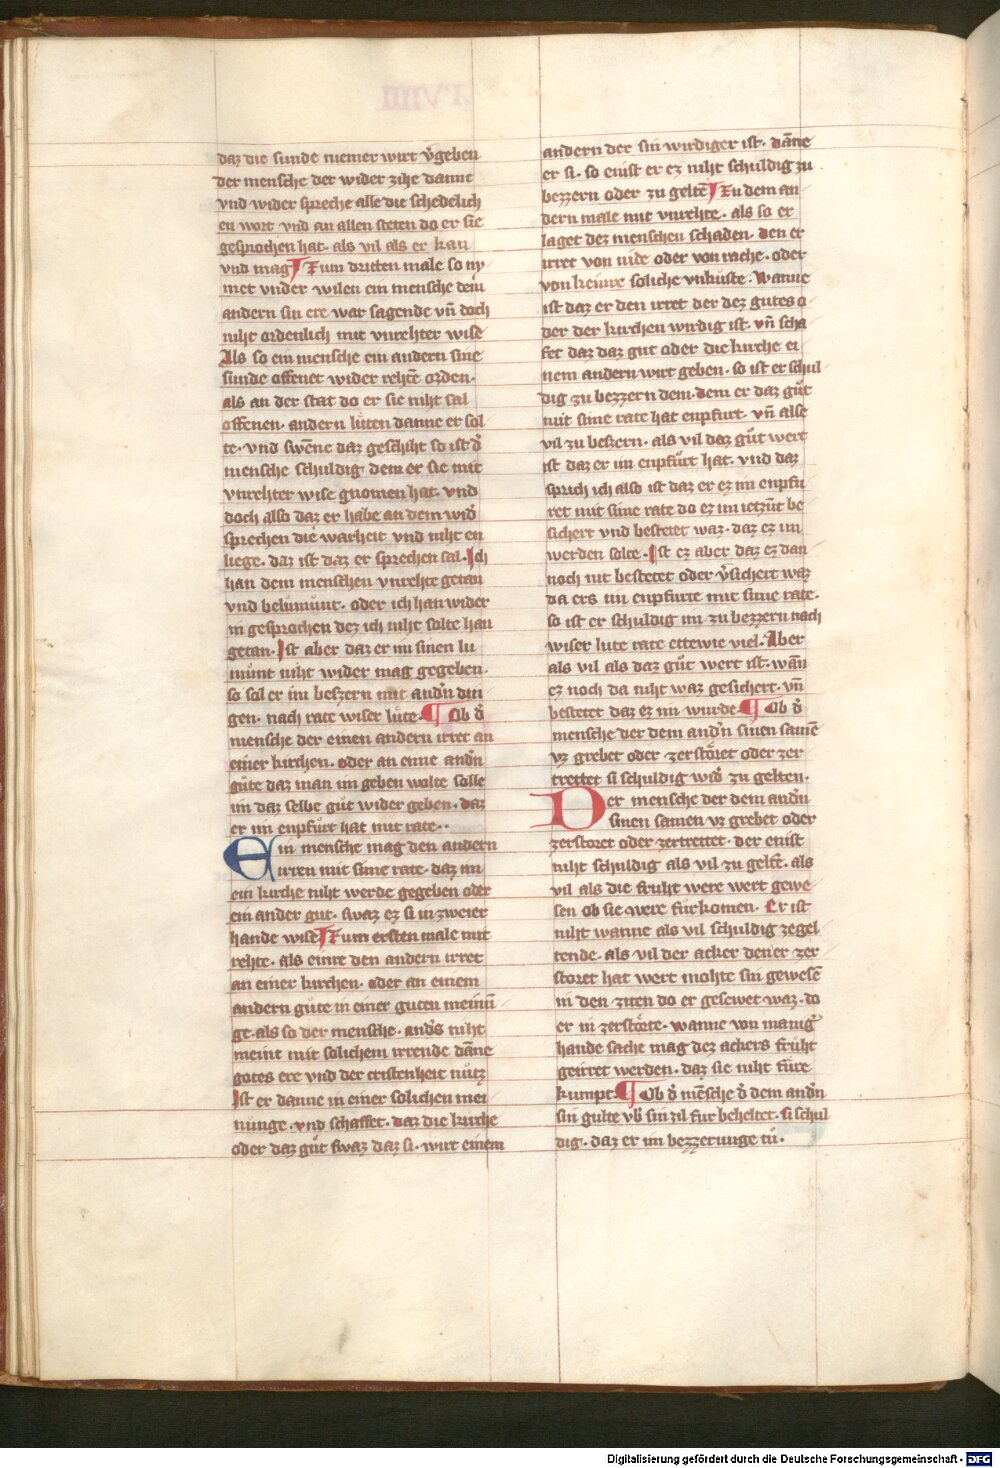 daz die sunde niemer wirt v͛geben
der mensche der wider zihe danne
vnd wider spreche alle die schedelich
en wort vnd an allen steten do er sie
gesprochen hat· als vil als er kan
vnd mag Zum dritten male so ny
met vnder wilen ein mensche dem
andern sin ere war sagende vn̄ doch
niht ordenlich mit vnrehter wise
Als so ein mensche ein andern sine
sunde offenet wider rehtē orden·
als an der stat do er sie niht sal
offenen· andern luͤten danne er sol
te· vnd swēne daz geschiht so ist d͛
mensche schuldig dem er sie mit
vnrehter wise gnomen hat· vnd
doch also daz er habe an dem wid͛
sprechen die warheit vnd niht en
liege· daz ist daz er sprechen sal· Ich
han dem menschen vnrehte getan
vnd beluͤmunt· oder ich han wider
in gesprochen dez ich niht solte han
getan· Ist aber daz er im sinen lu
muͤnt niht wider mag gegeben·
so sol er im beszern mit and͛n din
gen· nach rate wiser luͤte· ¶ Ob d͛
mensche der einen andern irret an
einer kirchen· oder an eime and͛n
guͤte daz man im geben wolte solle
im daz selbe guͤt wider geben· daz
er im enpfuͤrt hat mit rate··
Ein mensche mag den andern
irren mit sime rate· daz im
ein kirche niht werde gegeben oder
ein ander gut· swaz ez si in zweier
hande wise Zum ersten male mit
rehte· als einre den andern irret
an einer kirchen· oder an einem
andern guͤte in einer guten meinū
ge· als so der mensche· and͛s niht
meint mit solichem irrende dāne
gotes ere vnd der cristenheit nuͤtz
Ist er danne in einer solichen mei
nunge· vnd schaffet· daz die kirche
oder daz guͤt swaz daz si· wirt einem
andern der sin wirdiger ist· dāne
er si· so enist er ez niht schuldig zu
bezzern oder zu geltē Zu dem an
dern male mit vnrehte· als so er
laget dez menschen schaden· den er
irret von nide oder von rache· oder
von keinre soliche vnkuste· Wanne
ist daz er den irret der dez gutes o
der der kirchen wirdig ist· vn̄ scha
fet daz daz gut oder die kirche ei
nem andern wirt geben· so ist er schul
dig zu bezzern dem· dem er daz guͤt
mit sime rate hat enpfurt· vn̄ alse
vil zu beszern· als vil daz guͤt wert
ist daz er im enpfuͤrt hat· vnd daz
sprich ich also ist daz er ez im enpfu
ret mit sime rate do ez im ietzuͤnt be
sichert vnd bestetet waz· daz ez im
werden solte· Ist ez aber daz ez dan
noch nit bestetet oder v͛sichert waz
da ers im enpfurte mit sime rate·
so ist er schuldig im· zu bezzern nach
wiser lute rate ettewie viel· Aber
als vil als daz guͤt wert ist· wān
ez noch da niht waz gesichert· vn̄
bestetet daz ez im wurde ¶ Ob d͛
mensche der dem and͛n sinen samē
vz grebet oder zerstoͤret oder zer
trettet si schuldig wid͛ zu gelten·
Der mensche der dem and͛n
sinen samen vz grebet oder
zerstoret oder zertrettet· der enist
niht schuldig als vil zu gelt̄e· als
vil als die fruht were wert gewe
sen ob sie were fuͤrkomen· Er ist
niht wanne als vil schuldig zegel
tende· als vil der acker den er zer
storet hat wert mohte sin gewesē
in den ziten do er gesewet waz· do
er in zerstoͤrte· wanne von manig͛
hande sache mag dez ackers fruͤht
geirret werden· daz sie niht fuͤre
kumpt· ¶ Ob d͛ mēsche d͛ dem and͛n
sin gulte vb͛ sin zil fur beheltet· si schul
dig· daz er im bezzerunge tuͤ·
Digitalisierung gefördert durch die Deutsche Forschungsgemeinschaft - DFG